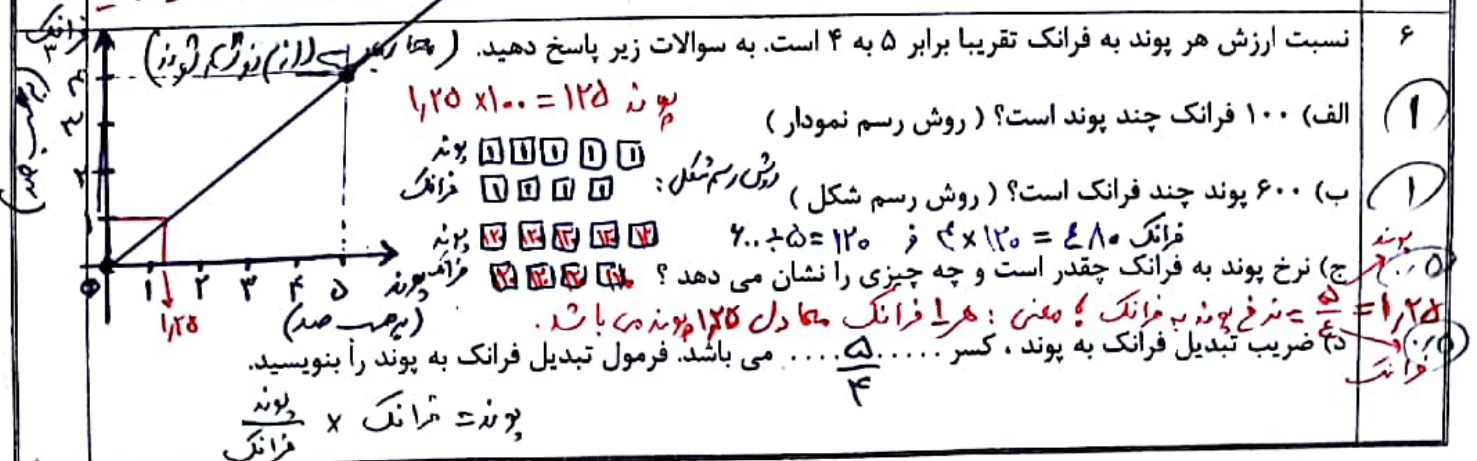 ۶
نسبت ارزش هر پوند به فرانک تقریبا برابر ۵ به ۴ است. به سوالات زیر پاسخ دهید.
۱
الف) ۱۰۰ فرانک چند پوند است؟ ( روش رسم نمودار )
۱٫۲۵ × ۱۰۰ = ۱۲۵ پوند
۱
ب) ۶۰۰ پوند چند فرانک است؟ ( روش رسم شکل )
روش رسم شکل:
۱ ۱ ۱ ۱ ۱ پوند
۱ ۱ ۱ ۱ فرانک
۶۰۰ ÷ ۵ = ۱۲۰ و ۴ × ۱۲۰ = ۴۸۰ فرانک
۱۲۰ ۱۲۰ ۱۲۰ ۱۲۰ ۱۲۰ پوند
۱۲۰ ۱۲۰ ۱۲۰ ۱۲۰ فرانک
۰٫۵
ج) نرخ پوند به فرانک چقدر است و چه چیزی را نشان می دهد ؟
پوند
فرانک
نرخ پوند به فرانک = ۵/۴ = ۱٫۲۵ معنی : هر ۱ فرانک معادل ۱٫۲۵ پوند می باشد.
۰٫۵
د) ضریب تبدیل فرانک به پوند ، کسر ..... ۵/۴ .... می باشد. فرمول تبدیل فرانک به پوند را بنویسید.
پوند = فرانک × پوند/فرانک
فرانک
(برحسب صد)
۴
۳
۲
۱
۰ ۱ ۲ ۳ ۴ ۵ پوند
۱٫۲۵
(برحسب صد)